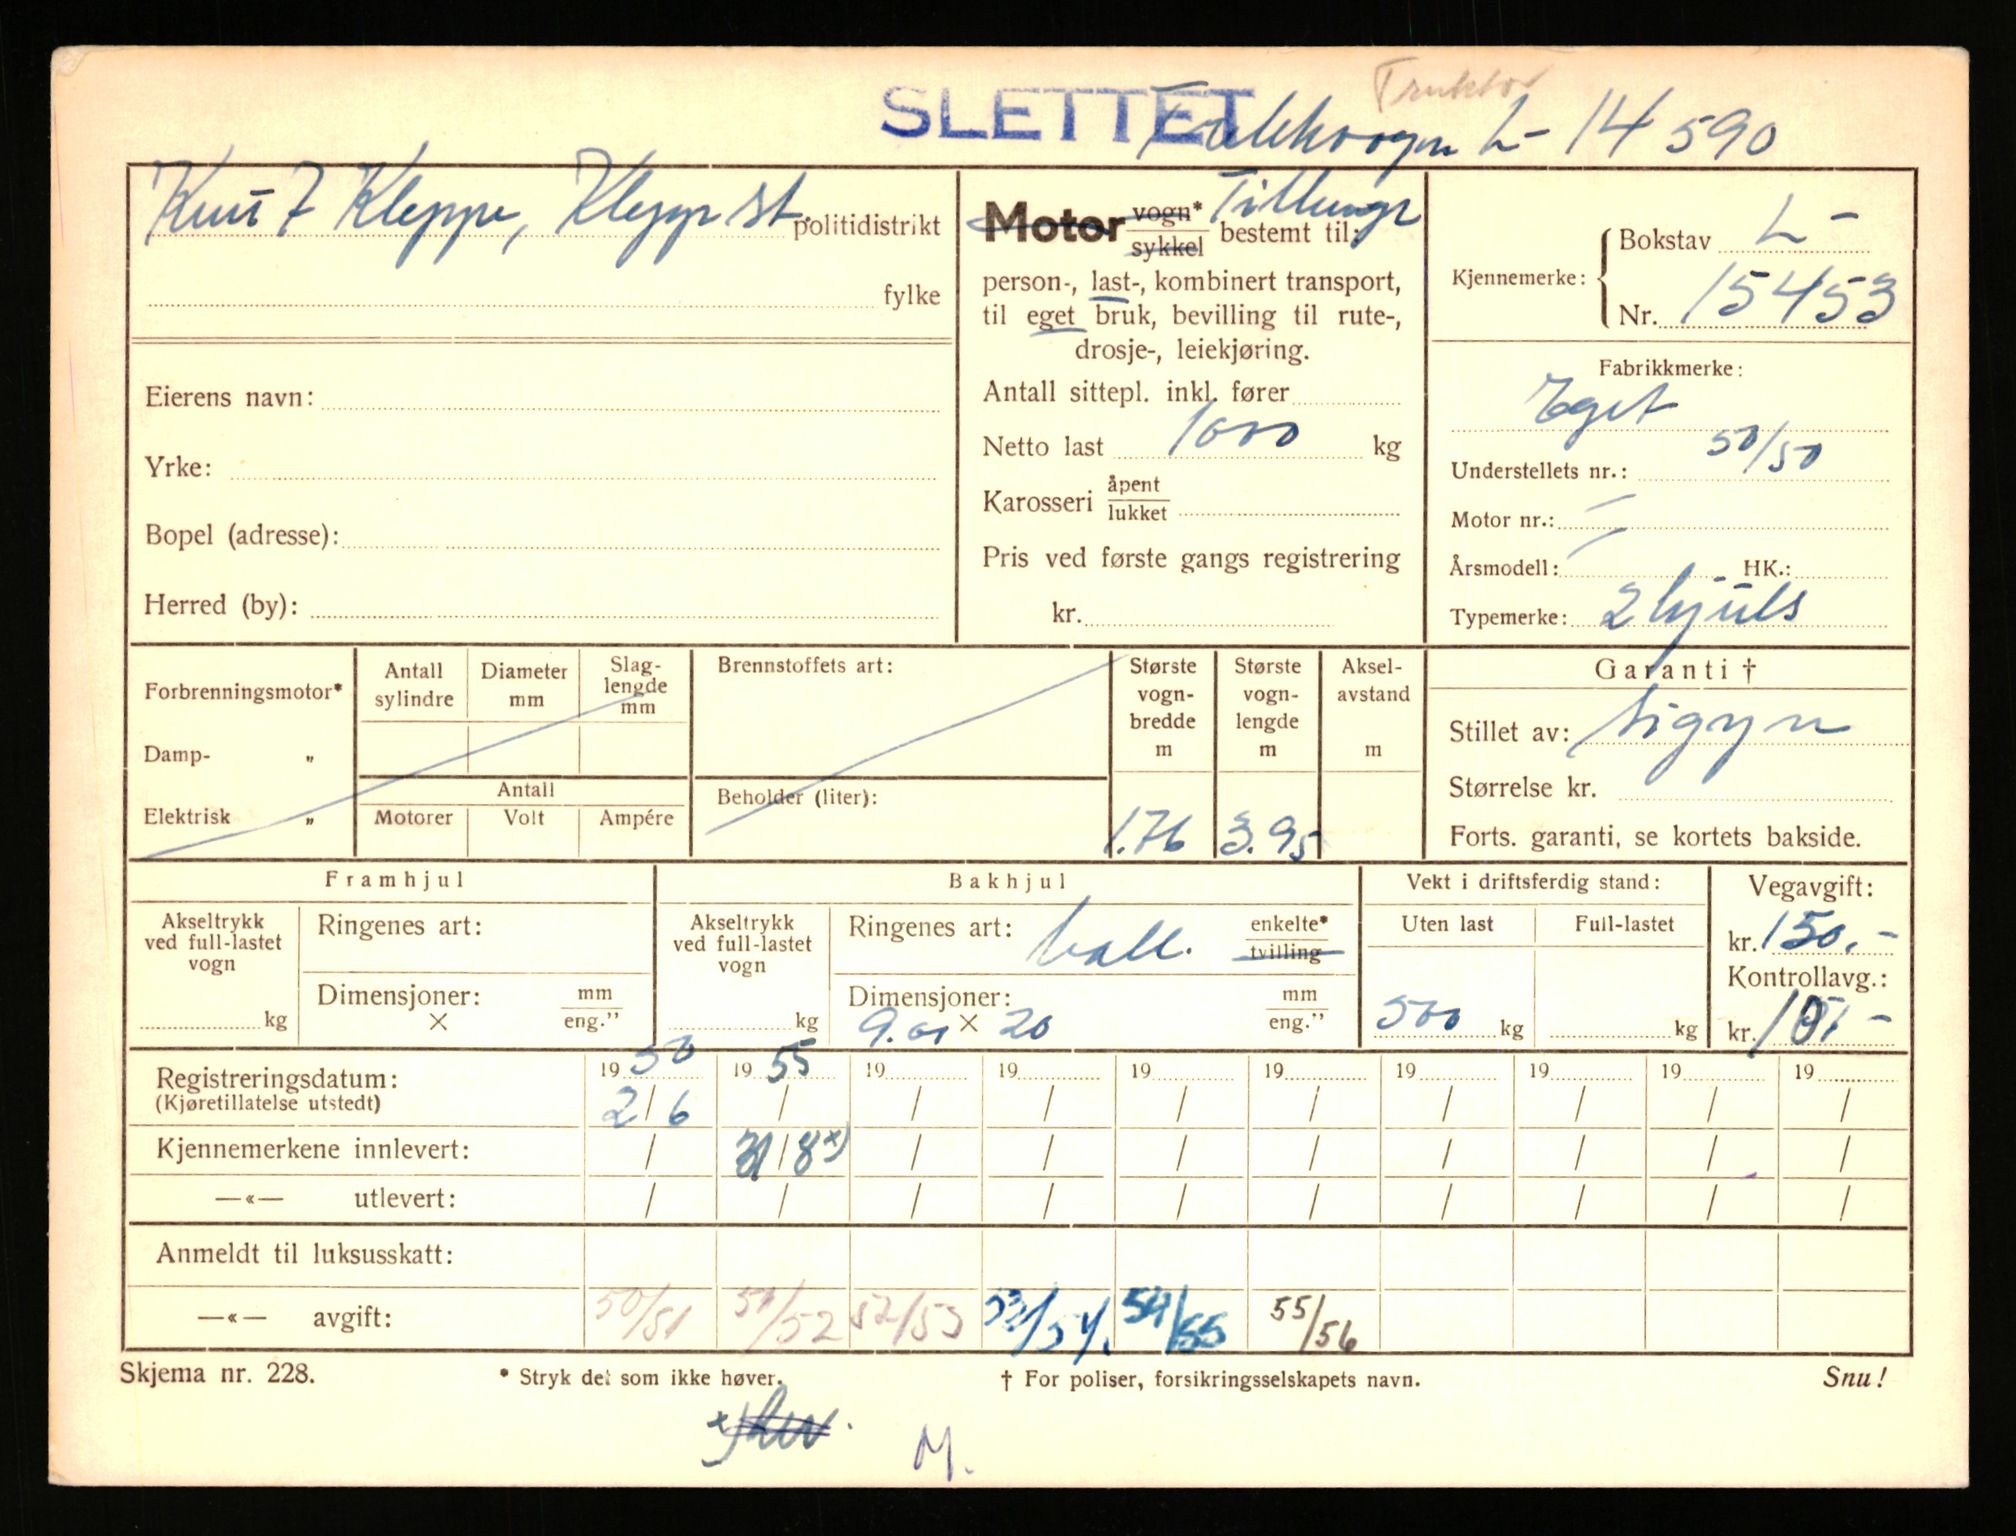 SLETTET Traktor
Trekkvogn L- 14590
Knut T Kleppe, Klepp st. politidistrikt
fylke
Eierens navn:
Yrke:
Bopel (adresse):
Herred (by):
Motor vogn* Tilhengr
sykkel bestemt til:
person-, last-, kombinert transport,
til eget bruk, bevilling til rute-,
drosje-, leiekjøring.
Antall sittepl. inkl. fører
Netto last 1000 kg
Karosseri åpent
lukket
Pris ved første gangs registrering
kr.
Kjennemerke: Bokstav L-
Nr. 15453
Fabrikkmerke:
Eget
Understellets nr.: 50/50
Motor nr.: —
Årsmodell: — HK.: —
Typemerke: 2 hjuls
Forbrenningsmotor*
Damp- „
Elektrisk „
Antall sylindre
Diameter mm
Slag-lengde mm
Antall
Motorer Volt Ampére
Brennstoffets art:
Beholder (liter):
Største vogn-bredde m
1.76
Største vogn-lengde m
3.95
Aksel-avstand m
Garanti †
Stillet av: Sigyn
Størrelse kr.
Forts. garanti, se kortets bakside.
Framhjul
Akseltrykk ved full-lastet vogn
kg
Ringenes art:
Dimensjoner: mm
× eng."
Bakhjul
Akseltrykk ved full-lastet vogn
kg
Ringenes art: ball. enkelte*
tvilling
Dimensjoner: mm
9.00 × 20 eng."
Vekt i driftsferdig stand:
Uten last Full-lastet
500 kg kg
Vegavgift:
kr. 150.-
Kontrollavg.:
kr. 10.-
Registreringsdatum: 19 50 19 55 19 19 19 19 19 19 19 19
(Kjøretillatelse utstedt) 2/6 / / / / / / / / /
Kjennemerkene innlevert: / 31/8 x) / / / / / / / /
—«— utlevert: / / / / / / / / / /
Anmeldt til luksusskatt:
—«— avgift: 50/51 51/52 52/53 53/54. 54/55 55/56
Skjema nr. 228. * Stryk det som ikke høver. † For poliser, forsikringsselskapets navn. Snu!
M.